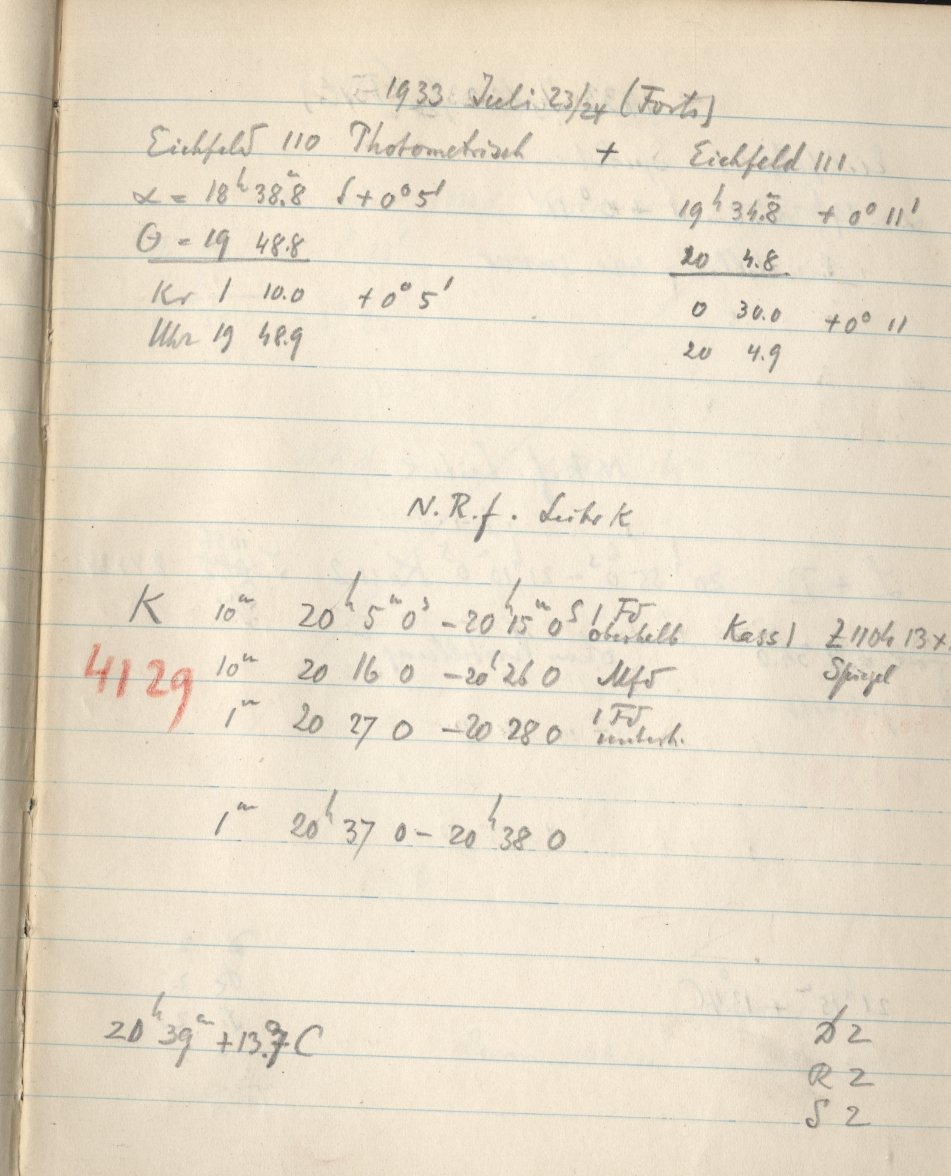 1933 Juli 23/24 (Forts)
Eichfeld 110 Photometrisch + Eichfeld 111.
α = 18ʰ 38.ᵐ8 δ + 0° 5' 19ʰ 34.ᵐ8 + 0° 11'
Θ = 19 48.8 20 4.8
Kr 1 10.0 + 0° 5' 0 30.0 + 0° 11
Uhr 19 48.9 20 4.9
N. R. f.
K 10ᵐ 20ʰ 5ᵐ 0ˢ – 20ʰ 15ᵐ 0ˢ 1 Fd oberhalb Kass 1 Spiegel
4129 10ᵐ 20 16 0 – 20ʰ 26 0 Mfd
1ᵐ 20 27 0 – 20 28 0 1 Fd unterh.
1ᵐ 20ʰ 37 0 – 20ʰ 38 0
20ʰ 39ᵐ + 13.°7 C D 2
R 2
S 2